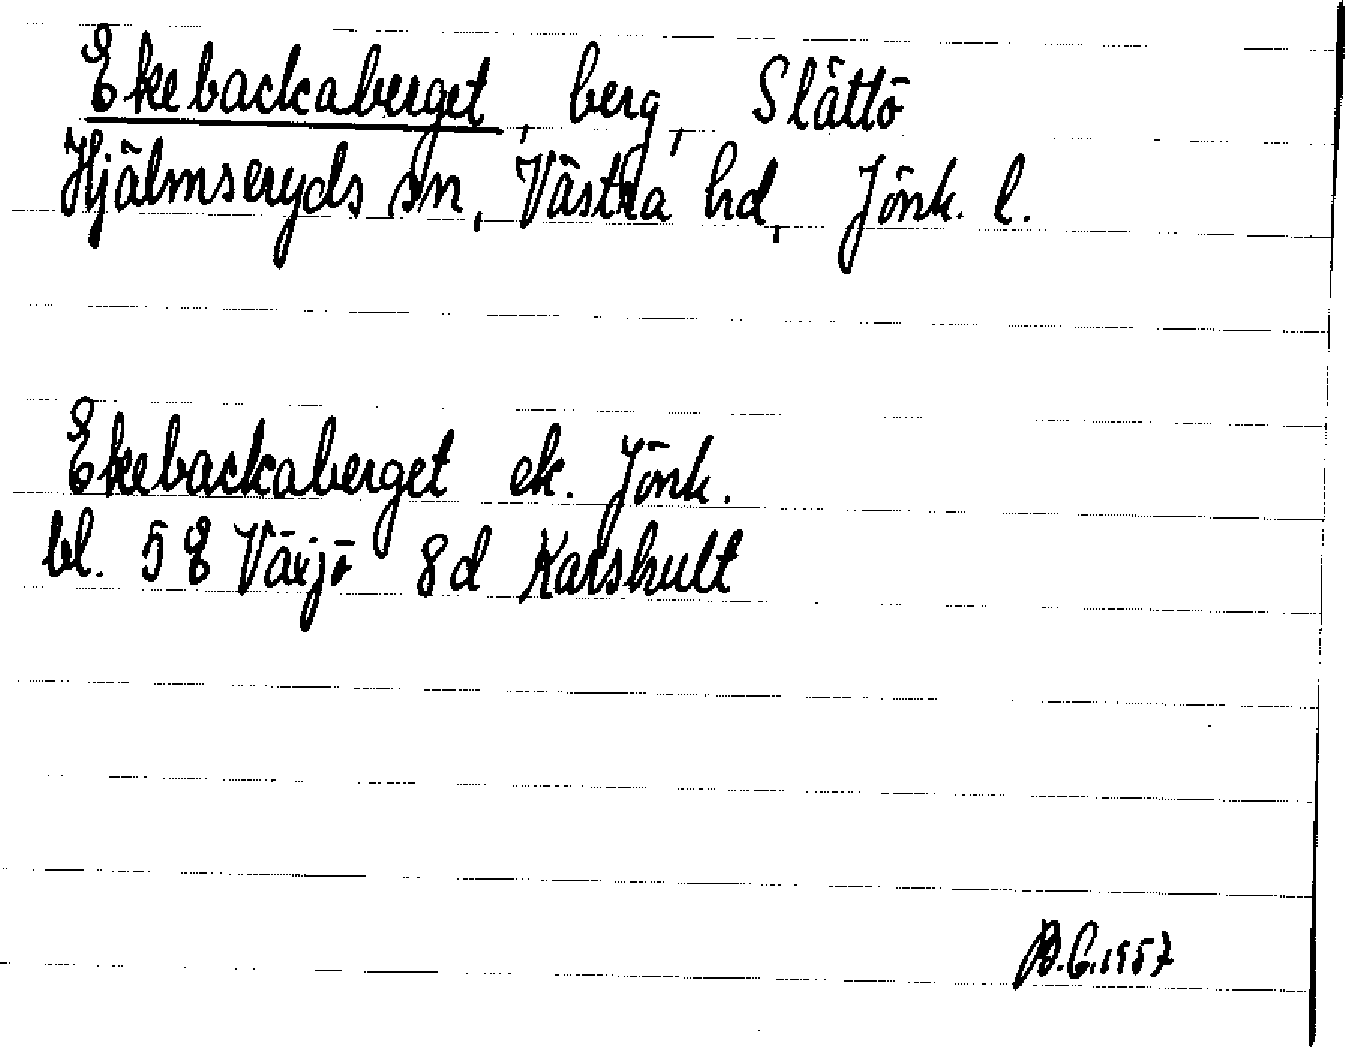 Ekebackaberget, berg, Slättö
Hjälmseryds sn, Västra hd, Jönk. l.
Ekebackaberget ek. Jönk.
bl. 5 E Växjö 8d Karshult
B.C.1957